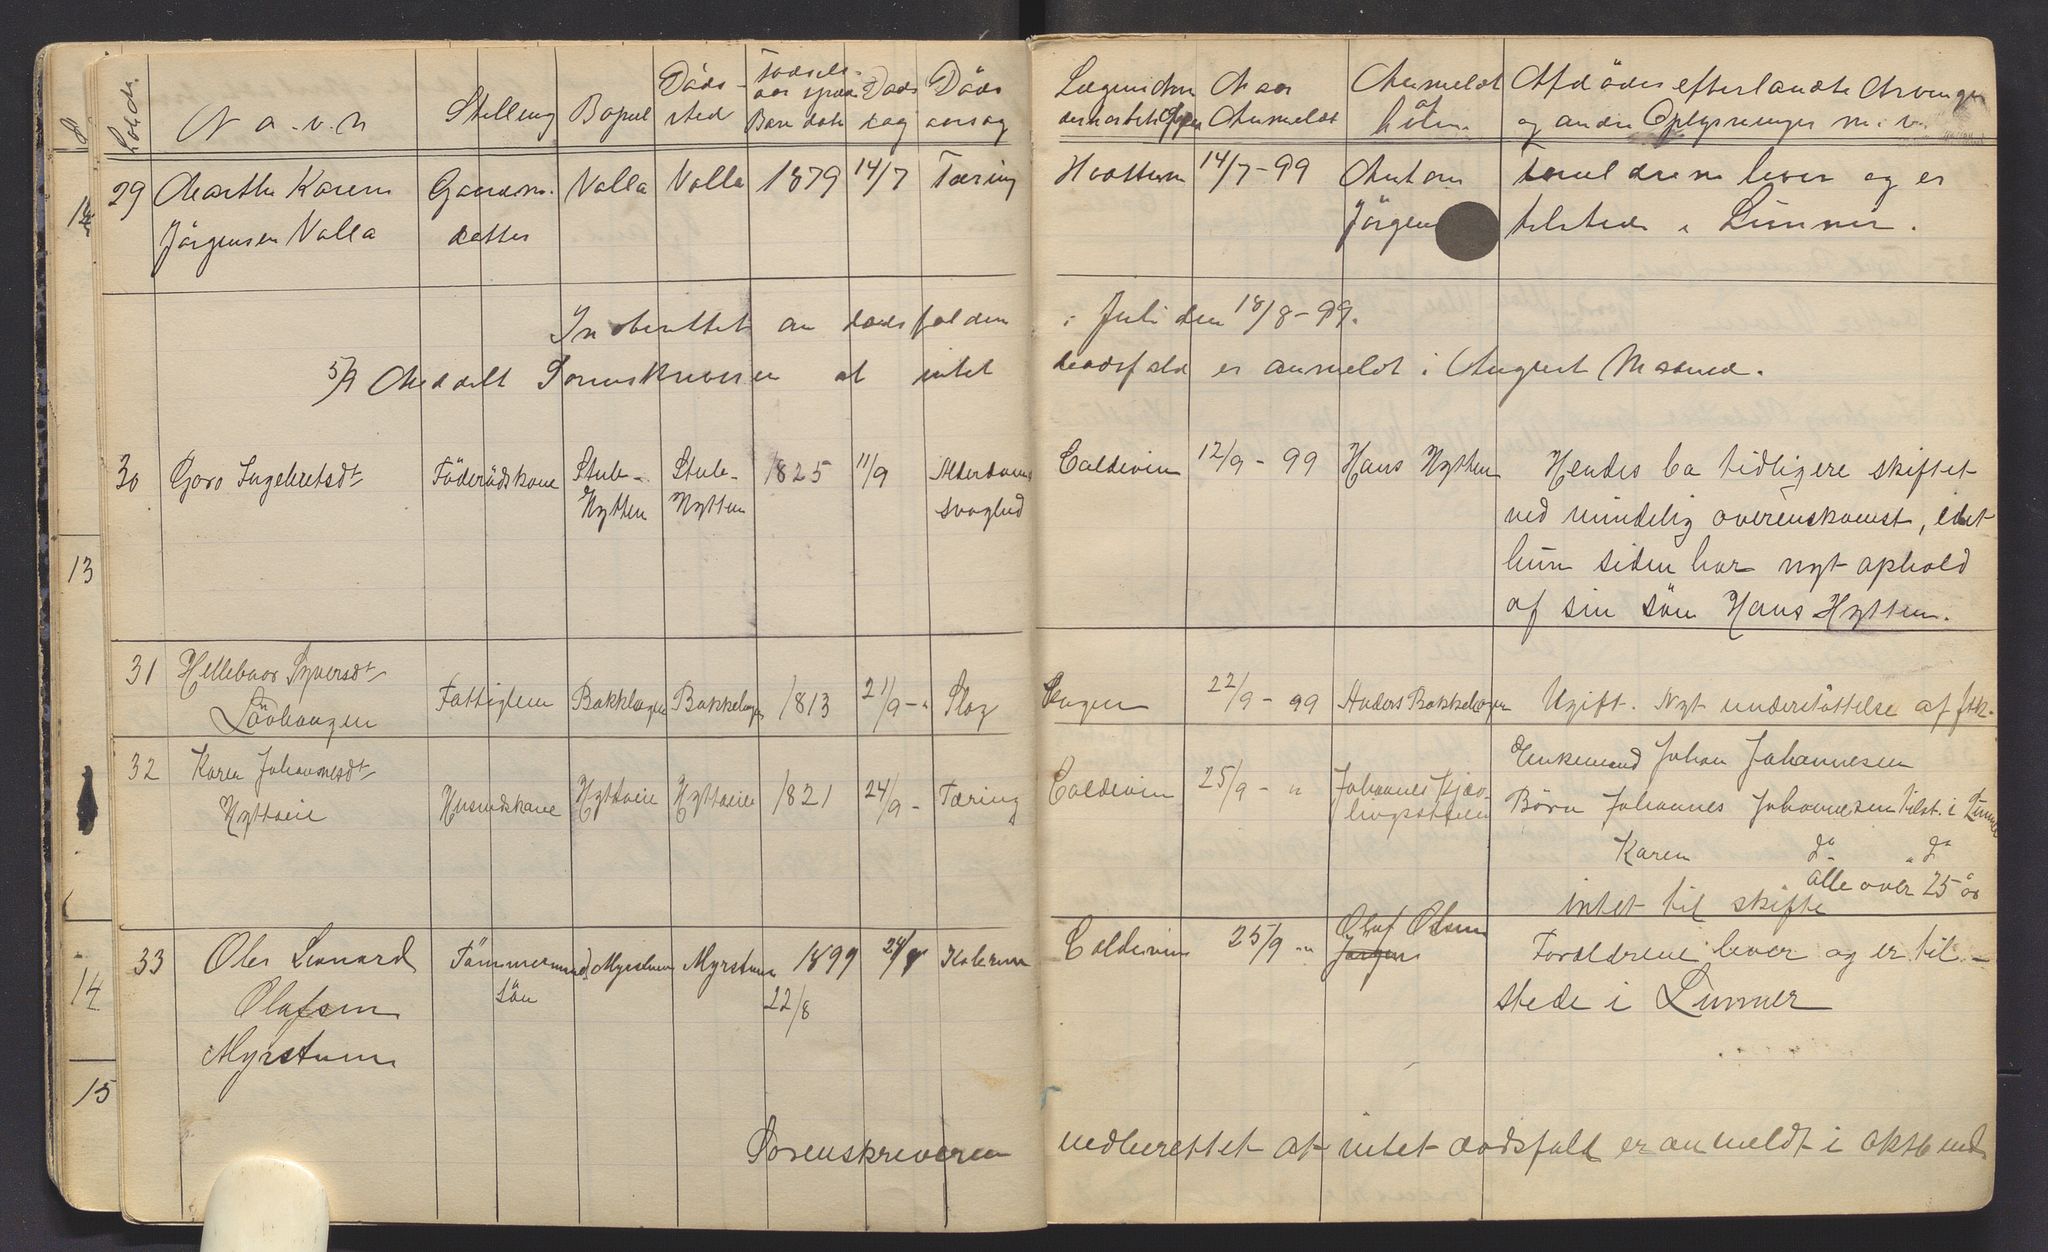 Løbede.
N a . v . n
Stilling
Bopæl
Døds-
sted
Fødsels-
aar
Barn dato
Døds
dag
Døds
aarsag
Naar
Anmeldt
Anmeldt
Afdødes efterladte Arvinger
og andre Oplysninger m. v.
29
Marthe Karen
Jørgensen Valla
Gaardm.
datter
Valla
Valla
1879
14/7
Tæring
14/7-99
Anton
Jørgen
Foreldrene lever og er
tilstede i Lunner.
Indberettet om dødsfaldene
i Juli den 18/8-99.
5/9 Meddelt Sorenskriveren at intet
dødsfald er anmeldt i August Maaned.
30
Goro Ingebretsdt
Föderådskone
Stub-
Hytten
Stub-
Hytten
1825
11/9
Alderdoms
svaghed
Coldevin
12/9 - 99
Hans Hytten
Hendes bo tidligere skiftet
ved mindelig overenskomst, idet
hun siden har nyt ophold
af sin sön Hans Hytten.
31
Hellebaar Syversdt
Lövhaugen
Fattiglem
Bakkhagen
Bakkehagen
1813
21/9 - "
Slag
22/9 - 99
Anders Bakkehagen
Ugift. Nyt understöttelse af ftk.
32
Karen Johannesdt
Hytteeie
Husmdskone
Hytteeie
Hytteeie
1821
24/9 -
Tæring
Coldevin
25/9 - "
Johannes Kjæv-
lingsstuen
Enkemand Johan Johannesen
Börn Johannes Johannesen tilst. i Lunner
Karen do " do
alle over 25 år
intet til skifte
33
Ole Leonard
Olafsen
Myrstuen
Tömmermand
sön
Myrstuen
Myrstuen
1899
22/8
24/9
Kolerine
Coldevin
25/9 - "
Olaf Olsen
Jörgen
Foreldrene lever og er til-
stede i Lunner
Sorenskriveren
indberettet at intet dödsfald er anmeldt i oktb md.
13
14
15